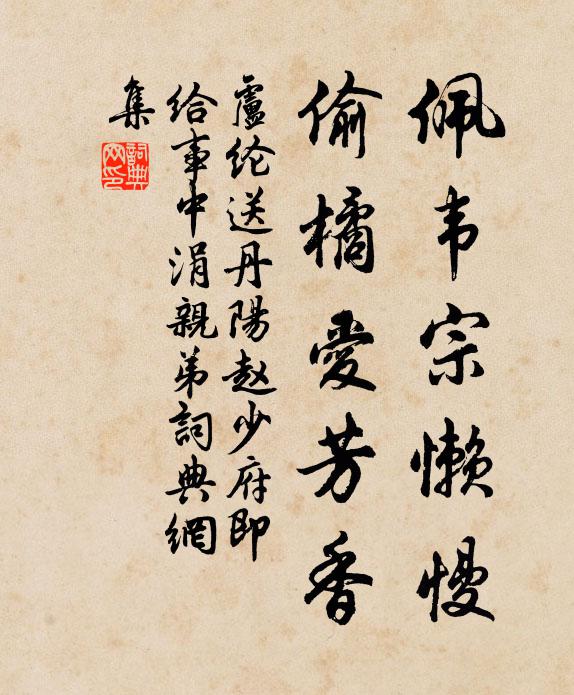 佩韦宗懒慢
偷橘爱芳香
盧纶送丹陽赵少府即
给事中涓親弟詞典網
集
詞典網印